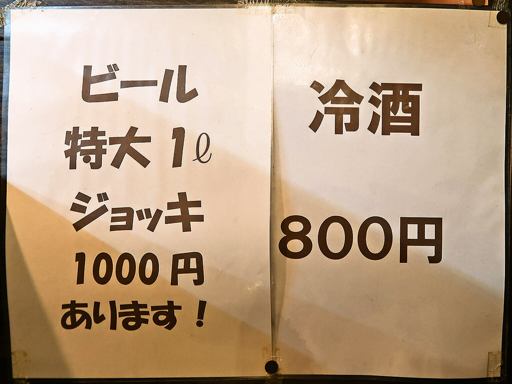 ビール
特大1ℓ
ジョッキ
1000円
あります！
冷酒
800円